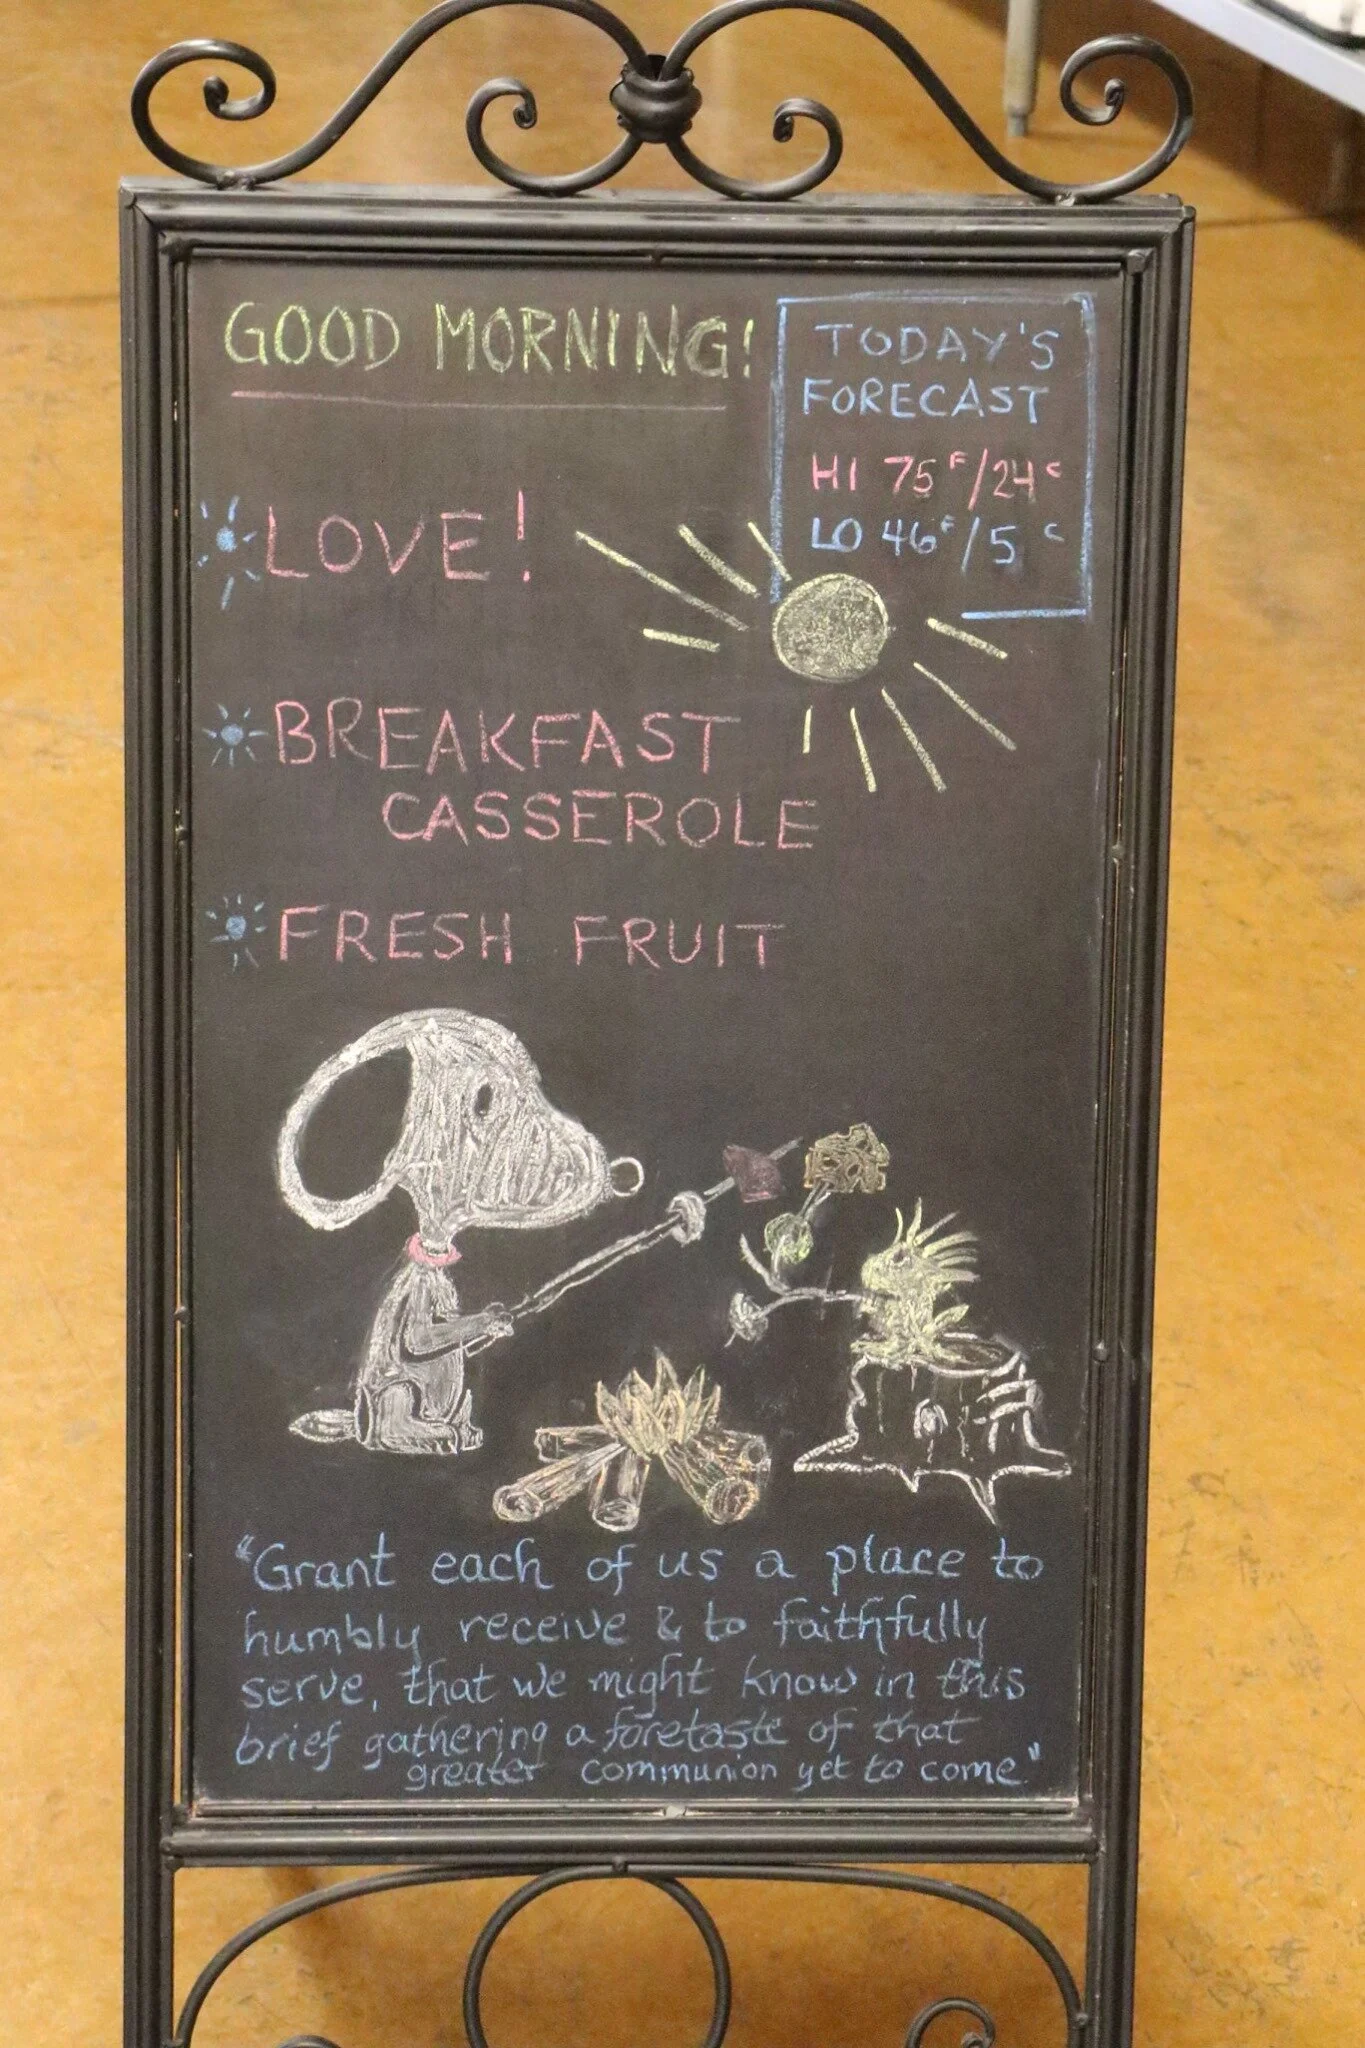 GOOD MORNING!
TODAY'S
FORECAST
HI 75 F/24 C
LO 46 F/5 C
LOVE!
BREAKFAST
CASSEROLE
FRESH FRUIT
"Grant each of us a place to
humbly receive & to faithfully
serve, that we might know in this
brief gathering a foretaste of that
greater communion yet to come"